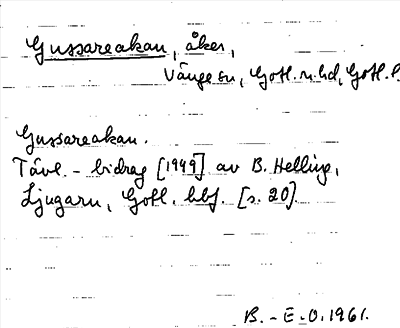 Gussareakan, åker,
Vänge sn, Gotl. n. hd, Gotl. l.
Gussareakan.
Tävl. - bidrag [1949] av B. Helling,
Ljugarn, Gotl. hbf. [s. 20].
B. - E. O. 1961.